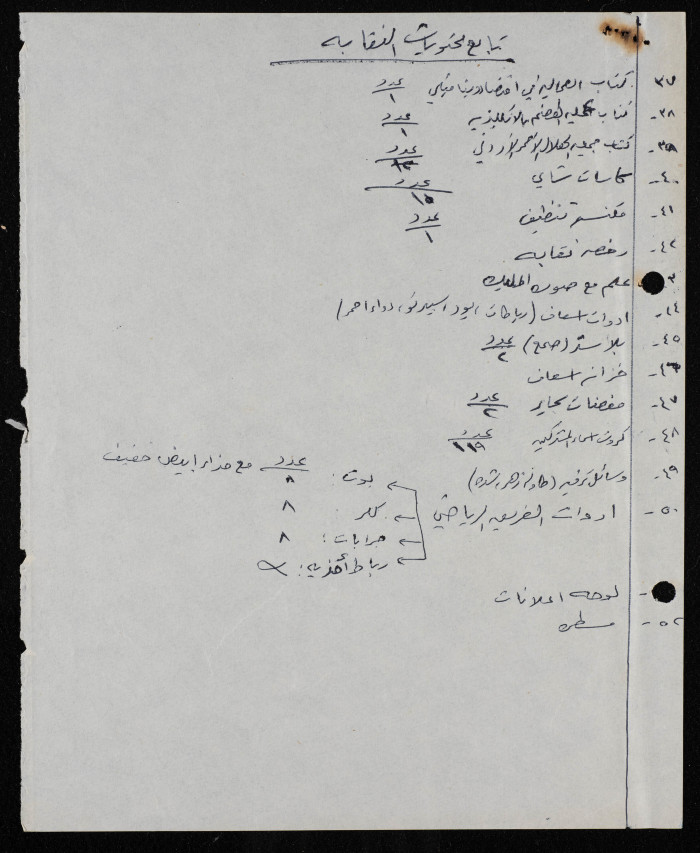 تابع محتويات النقابه
٣٧- كتاب العمال في اقتصاد ديناميكي عدد ١
٣٨- كتاب بالانكليزيه عدد ١
٣٩- كتاب جمعيه الهلال الأحمر الأردني عدد
٤٠- كاسات شاي عدد ١٥
٤١- مكنسة تنظيف عدد ١
٤٢- رخصه نقابه
٣ علم مع صورة الملك
٤٤- ادوات اسعاف (رباطات، يود، اسبرتو، دواء احمر)
٤٥- بلاستر (صمغ) عدد ٢
٤٦- خزانه اسعاف
٤٧- منفضات سجاير عدد ٢
٤٨- كروت اسماء المشتركين عدد ١١٩
٤٩- وسائل ترفيه (طاوله زهر، شده)
٥٠- ادوات الفريق الرياضي
بوت: عدد ٨ مع حذاء ابيض خفيف
كلر: ٨
جرابات: ٨
رباط أحذيه:
- لوحه اعلانات
٥٢- مسطره